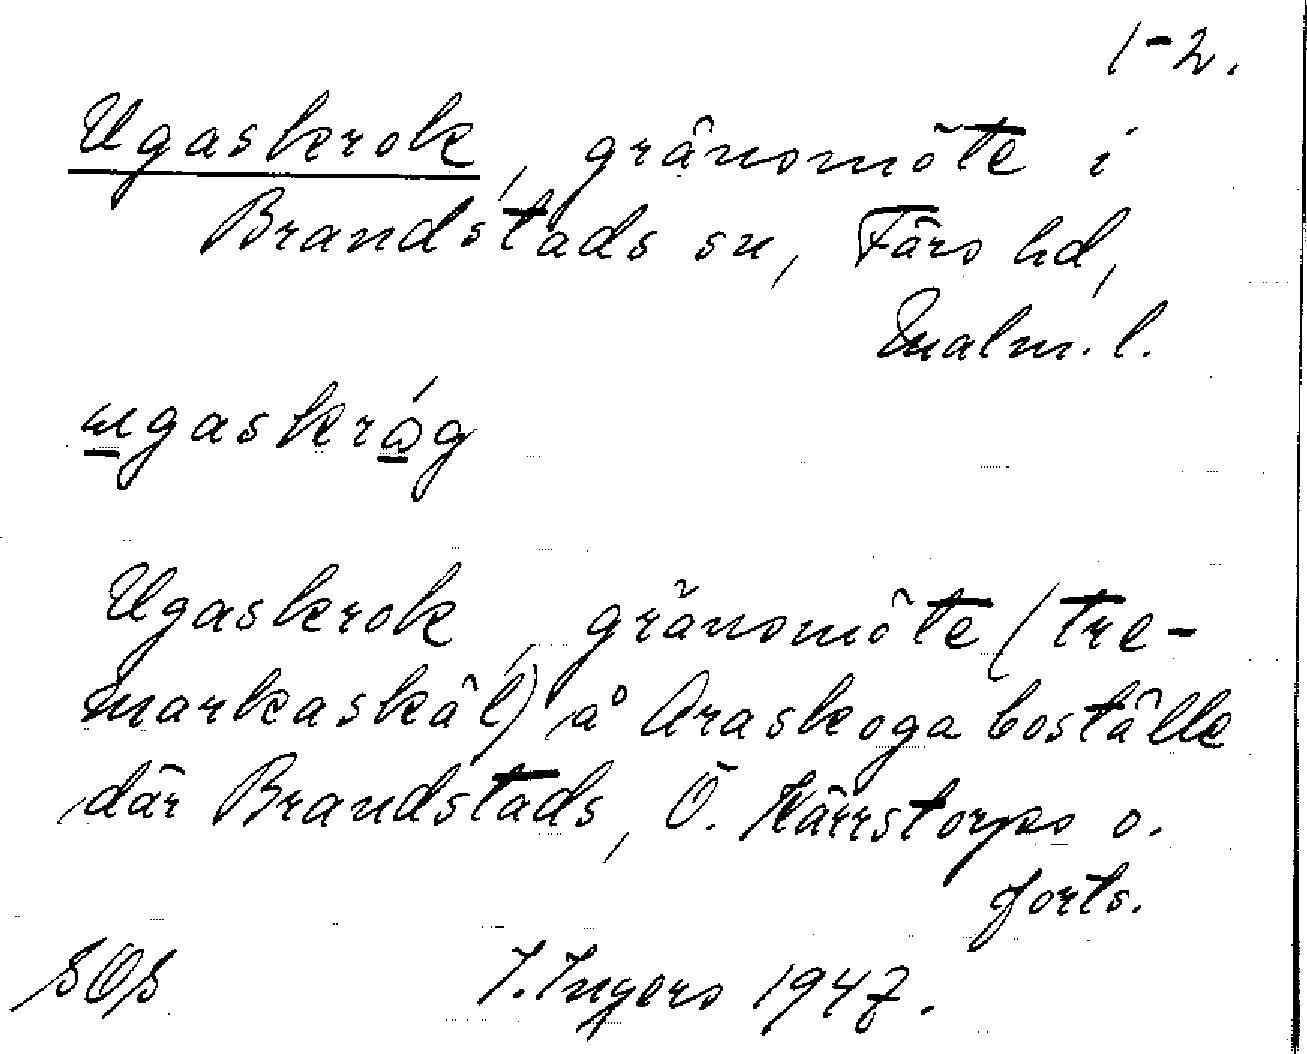 1-2.
Ugaskrok, gränsmöte i
Brandstads sn, Färs hd,
Malm. l.
ugaskróg
Ugaskrok, gränsmöte (tre-
markaskäl) å Araskoga boställe
där Brandstads, Ö. Kärrstorps o.
forts.
SOS I. Ingers 1947.